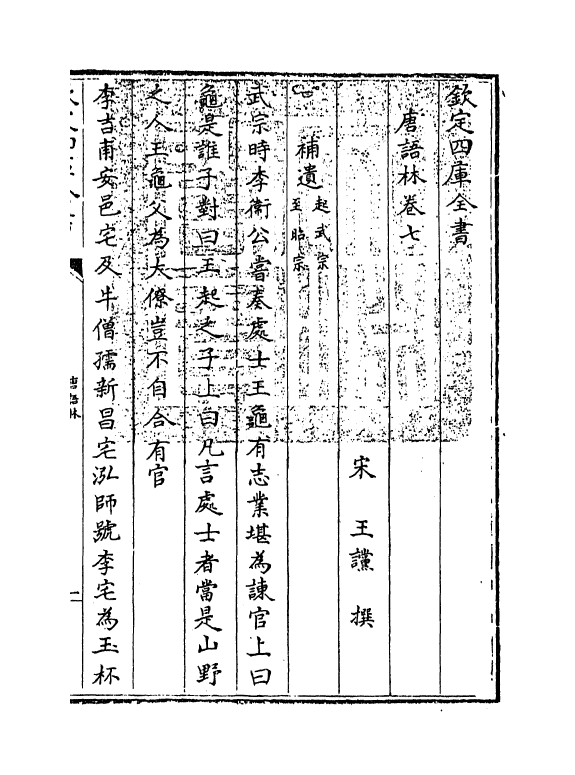 欽定四庫全書
唐語林卷七
宋 王讜 撰
補遺 起武宗至昭宗
武宗時李衛公嘗奏處士王龜有志業堪為諫官上曰
龜是誰子對曰王起之子上曰凡言處士者當是山野
之人王龜父為大僚豈不自合有官
李吉甫安邑宅及牛僧孺新昌宅泓師號李宅為玉杯
唐語林
一